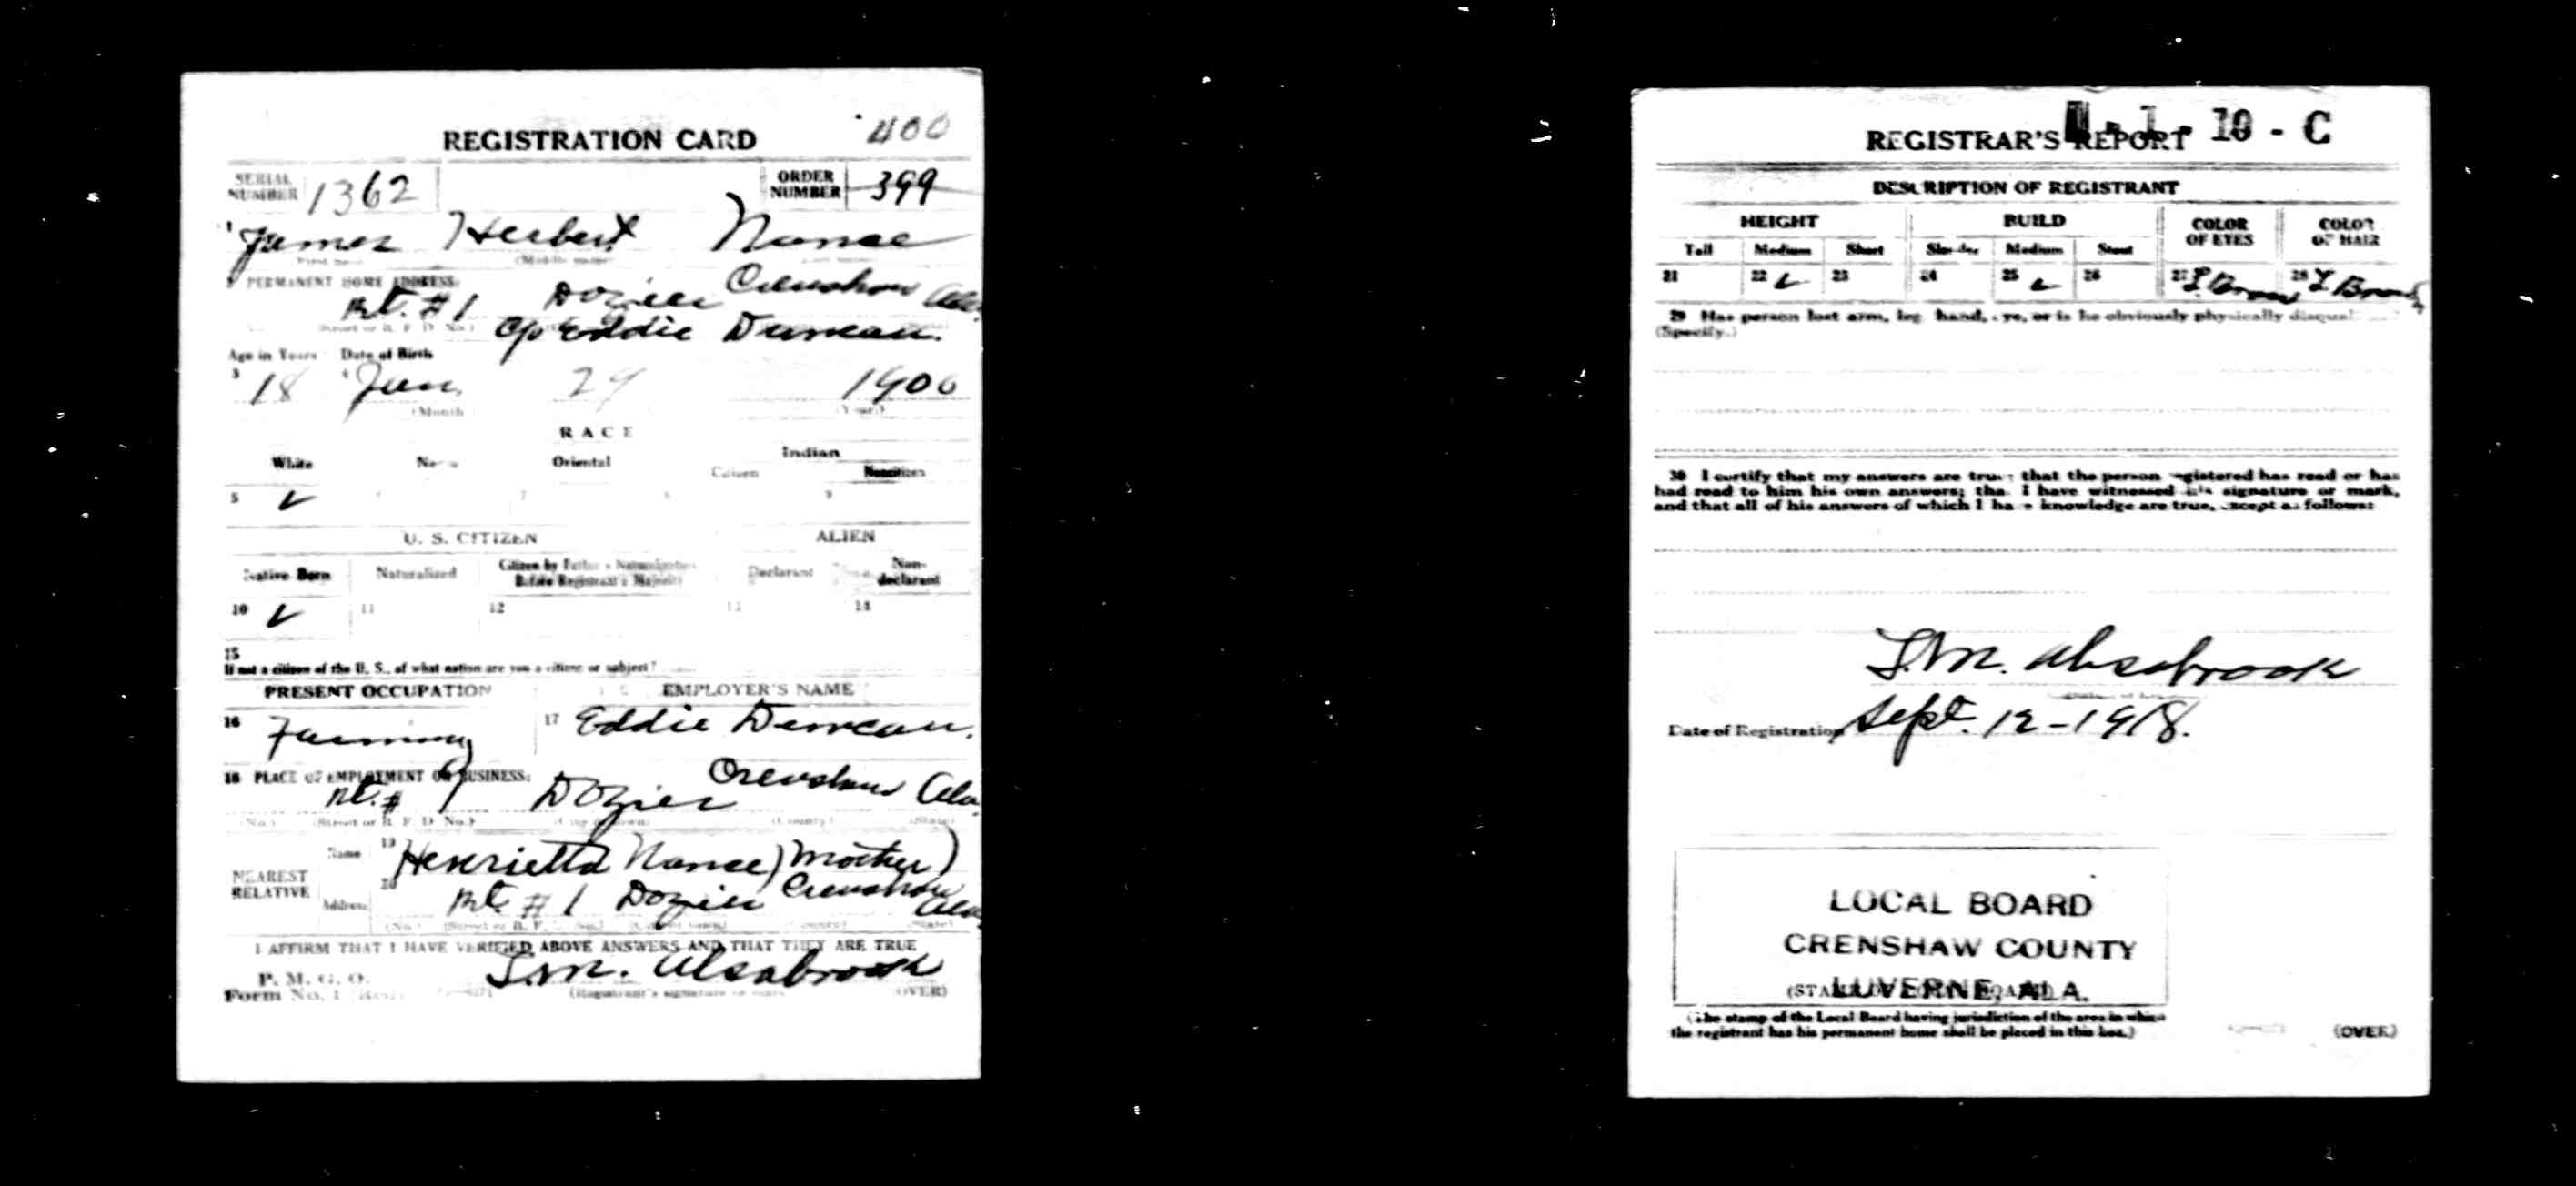 400
REGISTRATION CARD
SERIAL NUMBER 1362 ORDER NUMBER 399
1 James Herbert Nance
(Middle name)
PERMANENT HOME ADDRESS:
Rt. #1 Dozier Crenshaw Ala.
c/o Eddie Duncan.
Age in Years Date of Birth
3 18 4 Jan. 29 1900
(Month) (Year)
RACE
White Oriental Indian
Citizen Noncitizen
5 ✓ 7 8 9
U. S. CITIZEN ALIEN
Native Born Naturalized Citizen by Father's Naturalization Before Registrant's Majority Declarant Non-declarant
10 ✓ 11 12 13 14
15
If not a citizen of the U. S., of what nation are you a citizen or subject?
PRESENT OCCUPATION EMPLOYER'S NAME
16 Farming 17 Eddie Duncan.
18 PLACE OF EMPLOYMENT OR BUSINESS:
Rt. # 1 Dozier Crenshaw Ala
(No.) (Street or R. F. D. No.) (City or town) (County) (State)
NEAREST RELATIVE
Name 19 Henrietta Nance) Mother)
Address 20 Rt # 1 Dozier Crenshaw Ala
I AFFIRM THAT I HAVE VERIFIED ABOVE ANSWERS AND THAT THEY ARE TRUE
P. M. G. O.
Form No. 1 J.M. Alsabrook
(OVER)
1 - 10 - C
REGISTRAR'S REPORT
DESCRIPTION OF REGISTRANT
HEIGHT BUILD COLOR OF EYES COLOR OF HAIR
Tall Medium Short Slender Medium Stout
21 22 ✓ 23 24 25 ✓ 26 27 L Brown 28 L Brown
29 Has person lost arm, leg, hand, eye, or is he obviously physically
(Specify.)
30 I certify that my answers are true; that the person registered has read or has
had read to him his own answers; that I have witnessed his signature or mark,
and that all of his answers of which I have knowledge are true, except as follows:
J.M. Alsabrook
Date of Registration Sept. 12-1918.
LOCAL BOARD
CRENSHAW COUNTY
LUVERNE, ALA.
(The stamp of the Local Board having jurisdiction of the area in which
the registrant has his permanent home shall be placed in this box.)
(OVER)